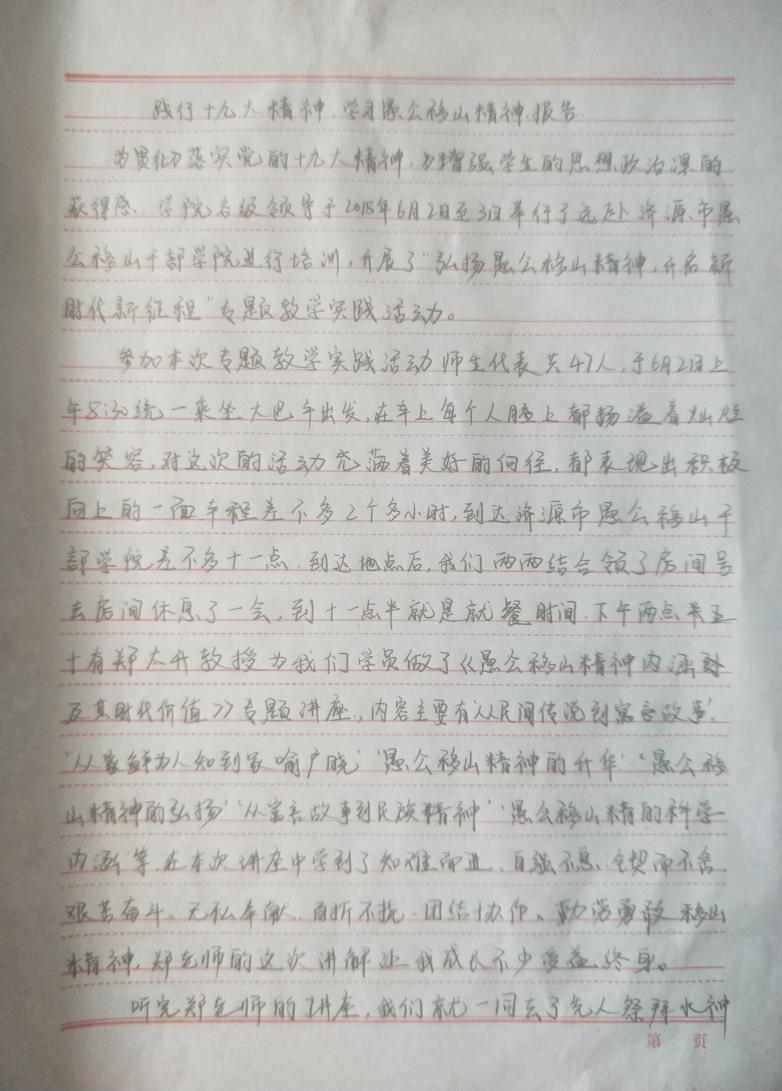 践行十九大精神.学习愚公移山精神.报告.
为贯彻落实党的十九大精神,为增强学生的思想政治课的
获得感.学院各级领导于2018年6月2日至3日举行了远赴济源市愚
公移山干部学院进行培训,开展了“弘扬愚公移山精神,开启新
时代新征程”专题教学实践活动。
参加本次专题教学实践活动师生代表共47人,于6月2日上
午8:30统一乘坐大巴车出发,在车上每个人脸上都扬溢着灿烂
的笑容,对这次的活动充满着美好的向往,都表现出积极
向上的一面车程差不多2个多小时,到达济源市愚公移山干
部学院差不多十一点.到达地点后,我们两两结合领了房间号
去房间休息了一会,到十一点半就是就餐时间.下午两点
十有郑太升教授为我们学员做了《愚公移山精神内涵
及其时代价值》专题讲座.,内容主要有‘从民间传说到寓言故事’
‘从鲜为人知到家喻户晓’‘愚公移山精神的升华’‘愚公移
山精神的弘扬’‘从寓言故事到民族精神’‘愚公移山精的科学
内涵’等.在本次讲座中学到了知难而进、自强不息、锲而不舍
艰苦奋斗、无私奉献、百折不挠、团结协作、勤劳勇敢移山
精神,郑老师的这次讲解让我成长不少受益终身。
听完郑老师的讲座,我们就一同去了先人祭拜水神
第 页